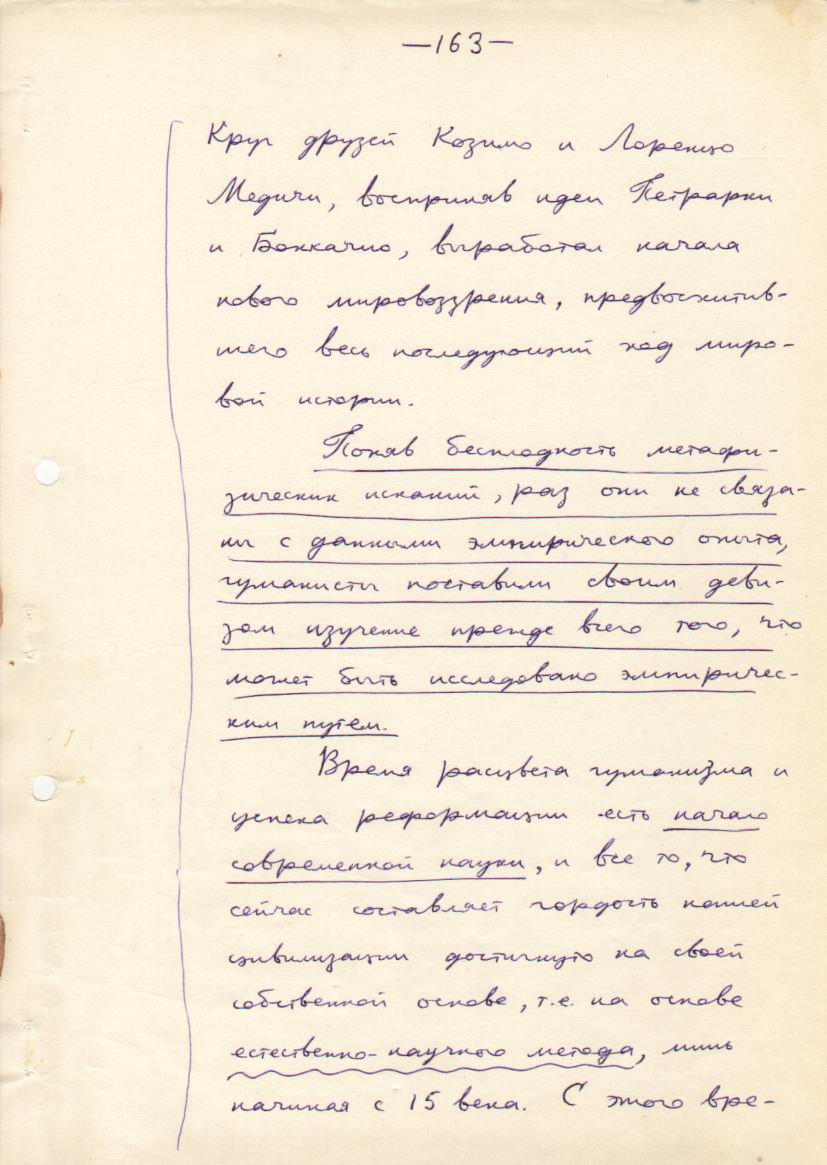 —163—
Круг друзей Козимо и Лоренцо
Медичи, восприняв идеи Петрарки
и Боккачио, выработал начала
нового мировоззрения, предвосхитив-
шего весь последующий ход миро-
вой истории.
Поняв бесплодность метафи-
зических исканий, раз они не связа-
ны с данными эмпирического опыта,
гуманисты поставили своим деви-
зом изучение прежде всего того, что
может быть исследовано эмпиричес-
ким путем.
Время расцвета гуманизма и
успеха реформации есть начало
современной науки, и все то, что
сейчас составляет гордость нашей
цивилизации достигнуто на своей
собственной основе, т.е. на основе
естественно-научного метода, лишь
начиная с 15 века. С этого вре-